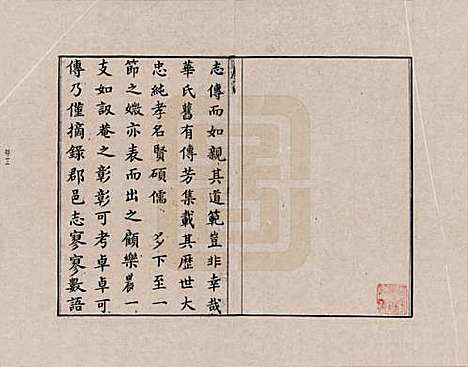 志傳而如親其道範豈非幸哉
華氏舊有傳芳集載其歷世大
忠純孝名賢碩儒多下至一
節之媺亦表而出之顧樂農一
支如訒菴之彰彰可考卓卓可
傳乃僅摘錄郡邑志寥寥數語